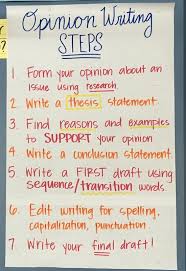 Opinion Writing
STEPS
1. Form your opinion about an
issue using research.
2. Write a thesis statement.
3. Find reasons and examples
to SUPPORT your opinion
4. Write a conclusion statement.
5. Write a FIRST draft using
sequence/transition words.
6. Edit writing for spelling,
capitalization, punctuation.
7. Write your final draft!